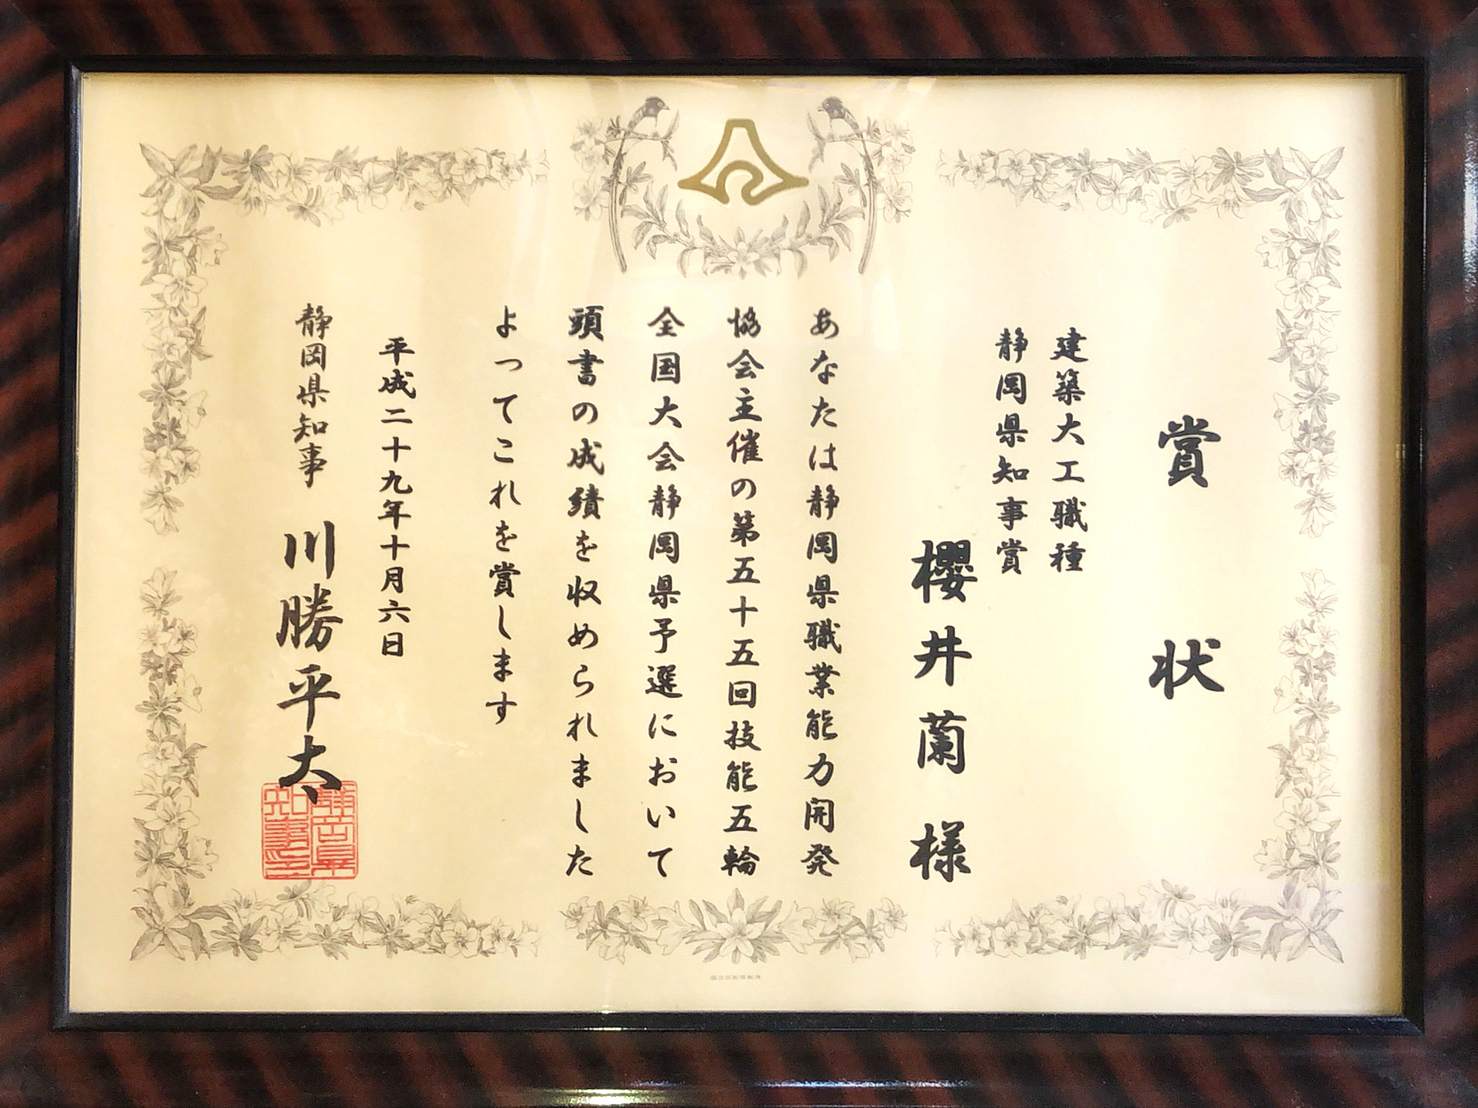 賞状
建築大工職種
静岡県知事賞
櫻井蘭様
あなたは静岡県職業能力開発
協会主催の第五十五回技能五輪
全国大会静岡県予選において
頭書の成績を収められました
よってこれを賞します
平成二十九年十月六日
静岡県知事 川勝平太